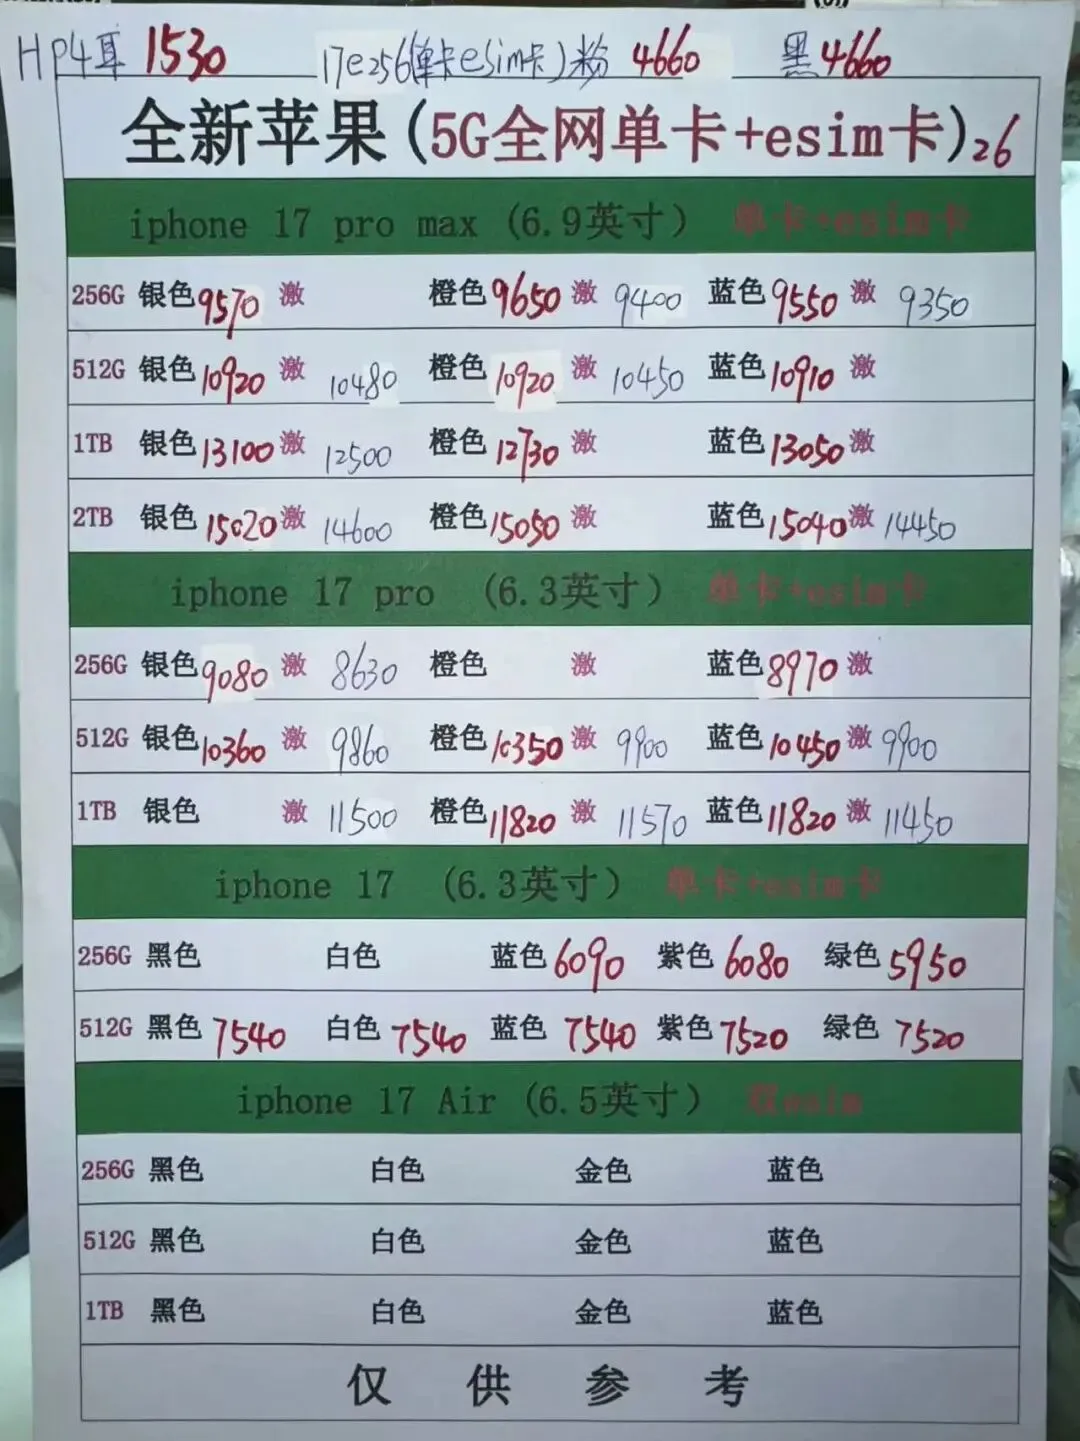 HP4耳 1530 17e256(单卡esim卡)粉 4660 黑4660
全新苹果(5G全网单卡+esim卡)26
iphone 17 pro max (6.9英寸) 单卡+esim卡
256G 银色9570 激 橙色9650 激 9400 蓝色9550 激 9350
512G 银色10920 激 10480 橙色10920 激 10450 蓝色10910 激
1TB 银色13100 激 12500 橙色12730 激 蓝色13050 激
2TB 银色15020 激 14600 橙色15050 激 蓝色15040 激 14450
iphone 17 pro (6.3英寸) 单卡+esim卡
256G 银色9080 激 8630 橙色 激 蓝色8970 激
512G 银色10360 激 9860 橙色10350 激 9900 蓝色10450 激 9900
1TB 银色 激 11500 橙色11820 激 11570 蓝色11820 激 11450
iphone 17 (6.3英寸) 单卡+esim卡
256G 黑色 白色 蓝色6090 紫色6080 绿色5950
512G 黑色7540 白色7540 蓝色7540 紫色7520 绿色7520
iphone 17 Air (6.5英寸) 双esim
256G 黑色 白色 金色 蓝色
512G 黑色 白色 金色 蓝色
1TB 黑色 白色 金色 蓝色
仅供参考